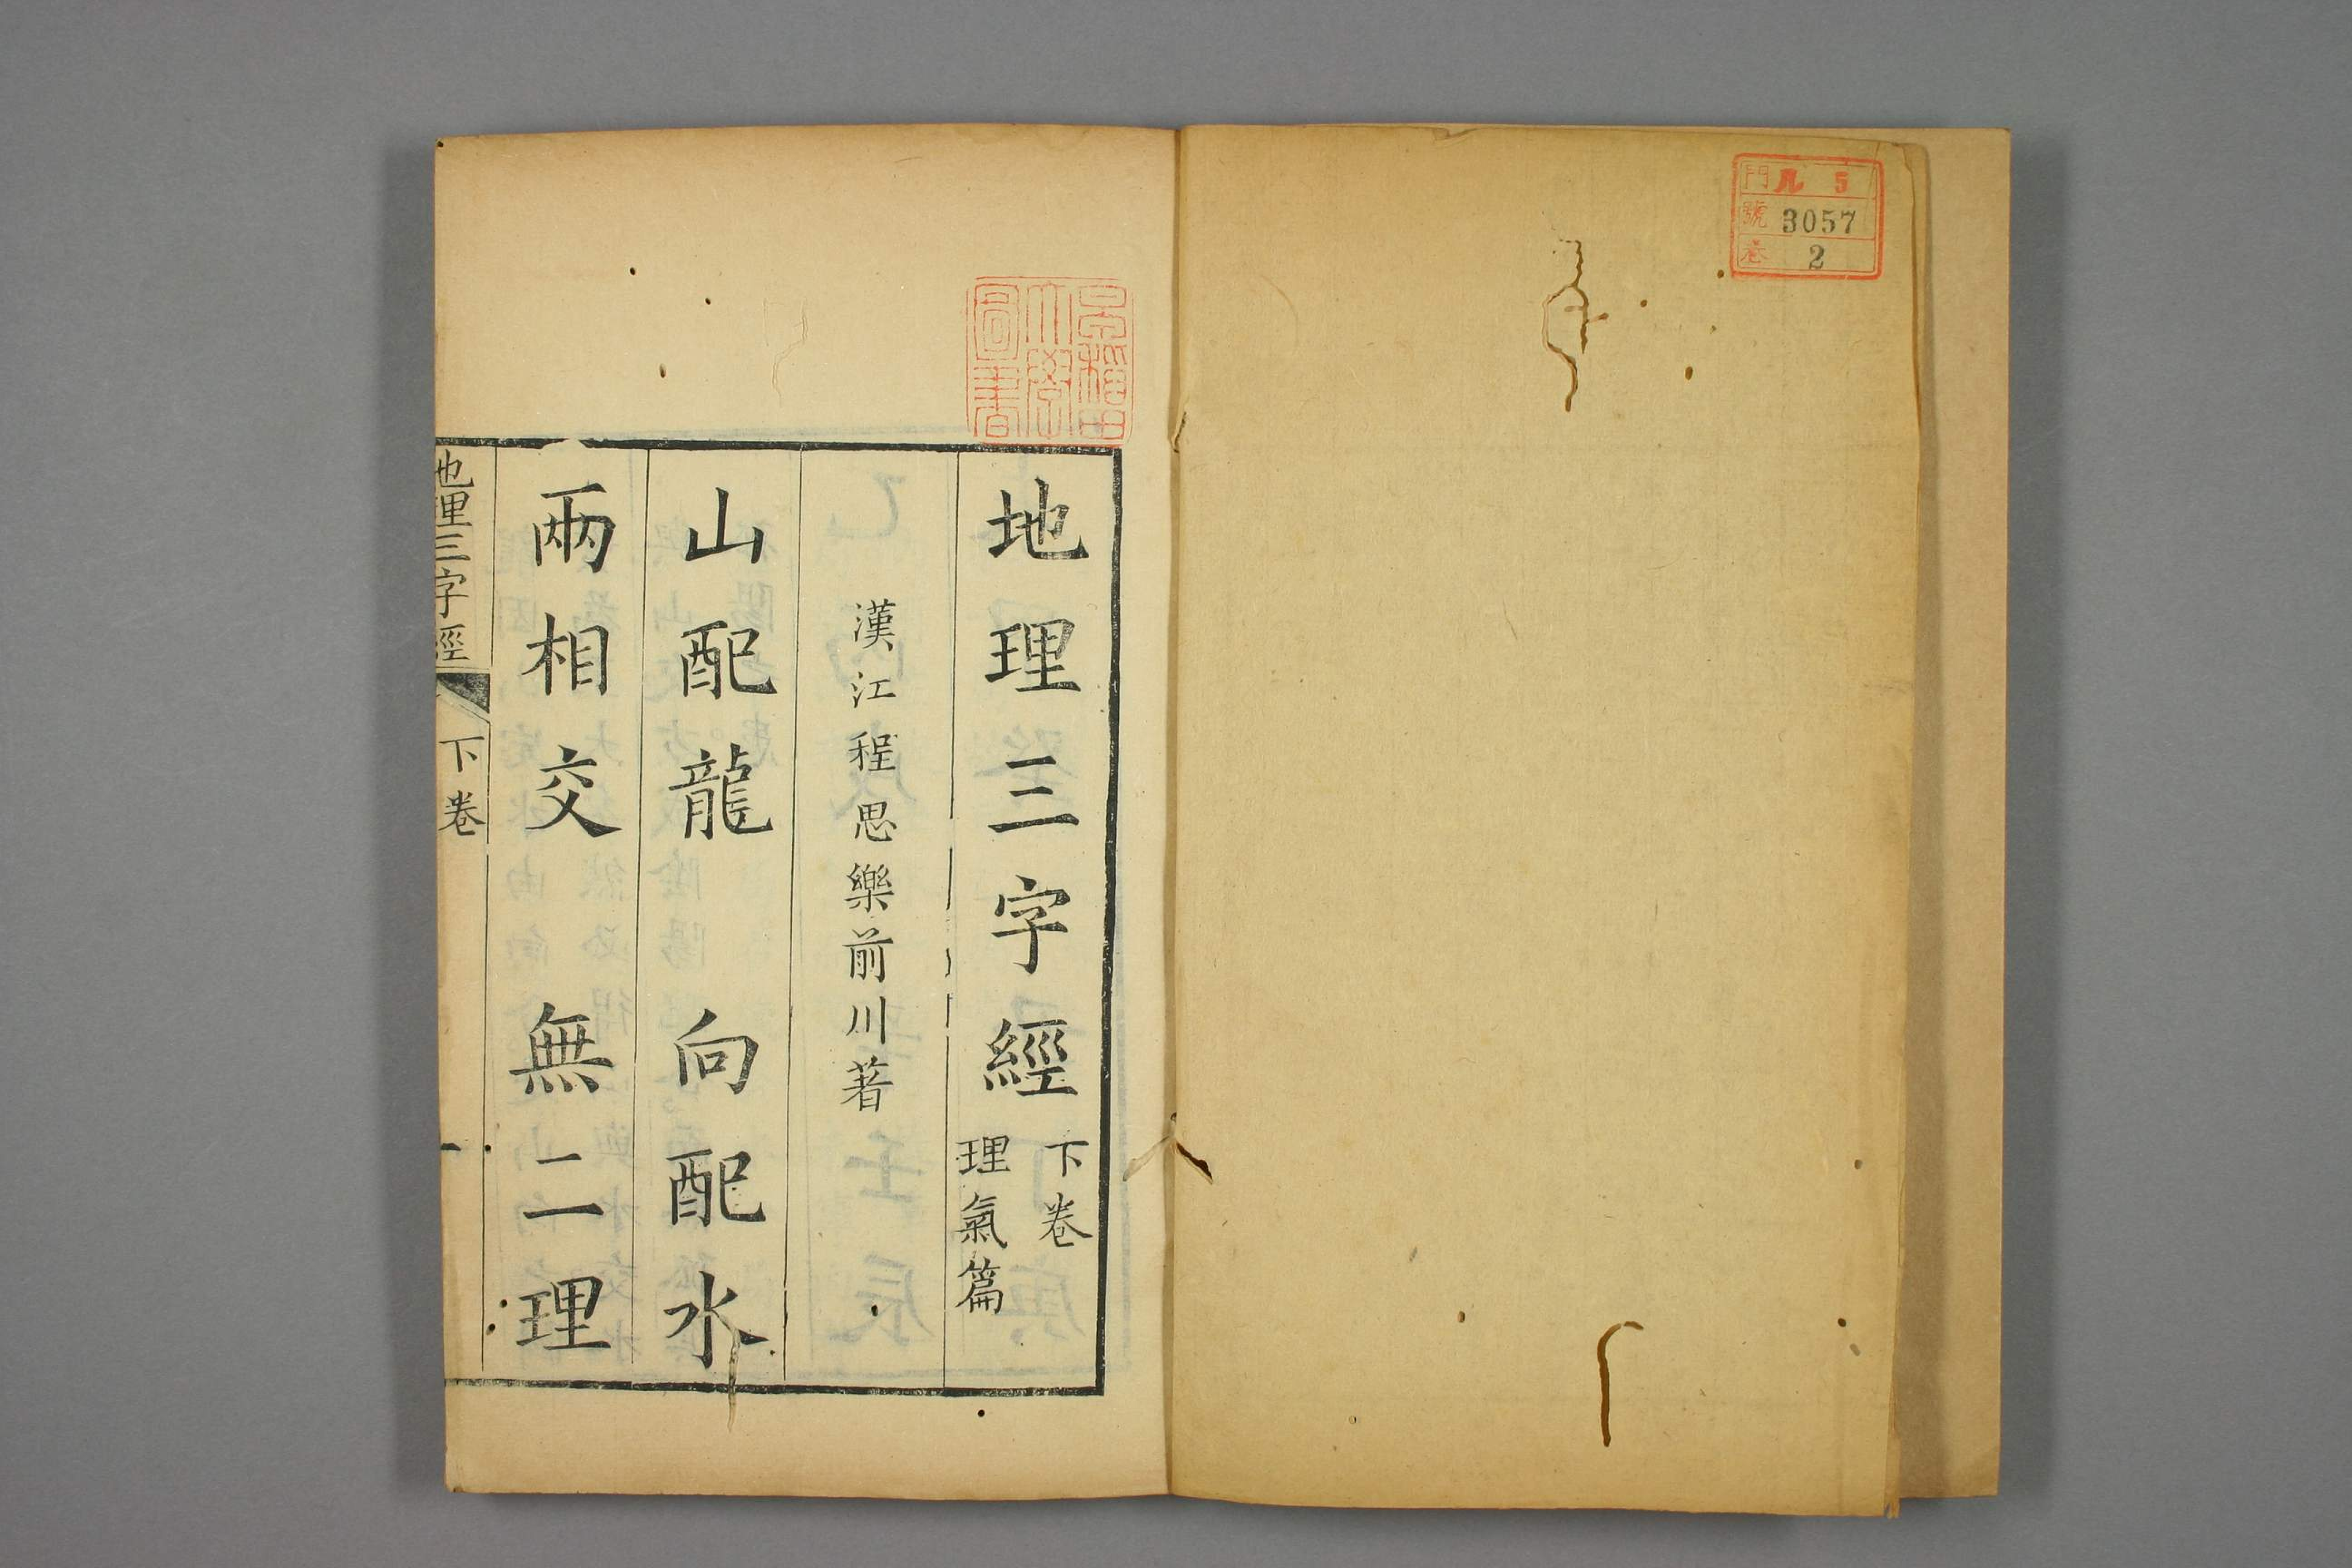 門 凡 5
號 3057
卷 2
早稲田
大學
圖書
地理三字經
下卷
理氣篇
漢江程思樂前川著
山配龍 向配水
兩相交 無二理
地理三字經 下卷 一